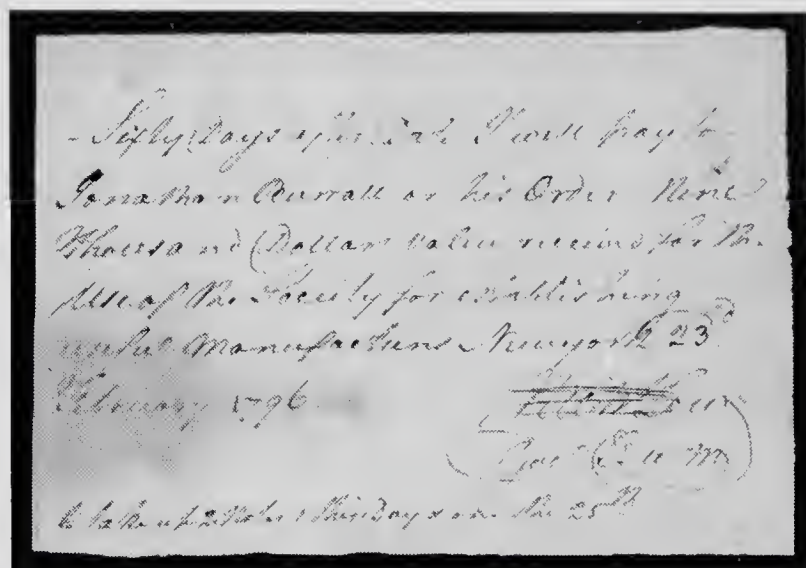 Sixty Days after Date I will pay to
Jonathan Burrall or his Order Nine
Thousand Dollars value received for the
Use of the Society for establishing
useful Manufactures Newyork 23d
February 1796
to take up 2 Notes this day & one the 25th